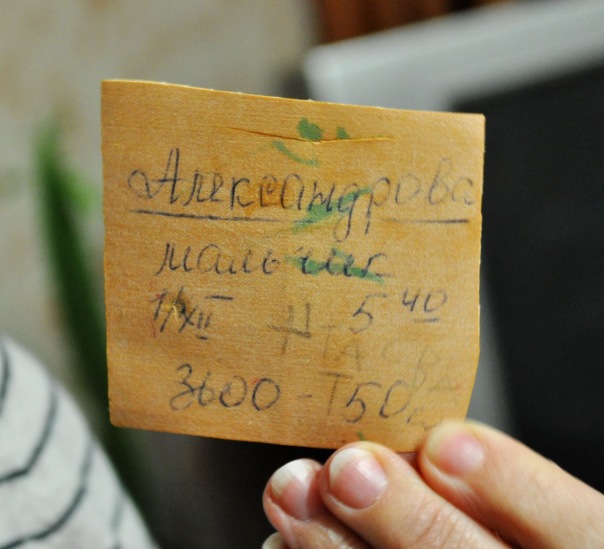 Александрова
мальчик
1/XII Ч-5 40
3600 - 50